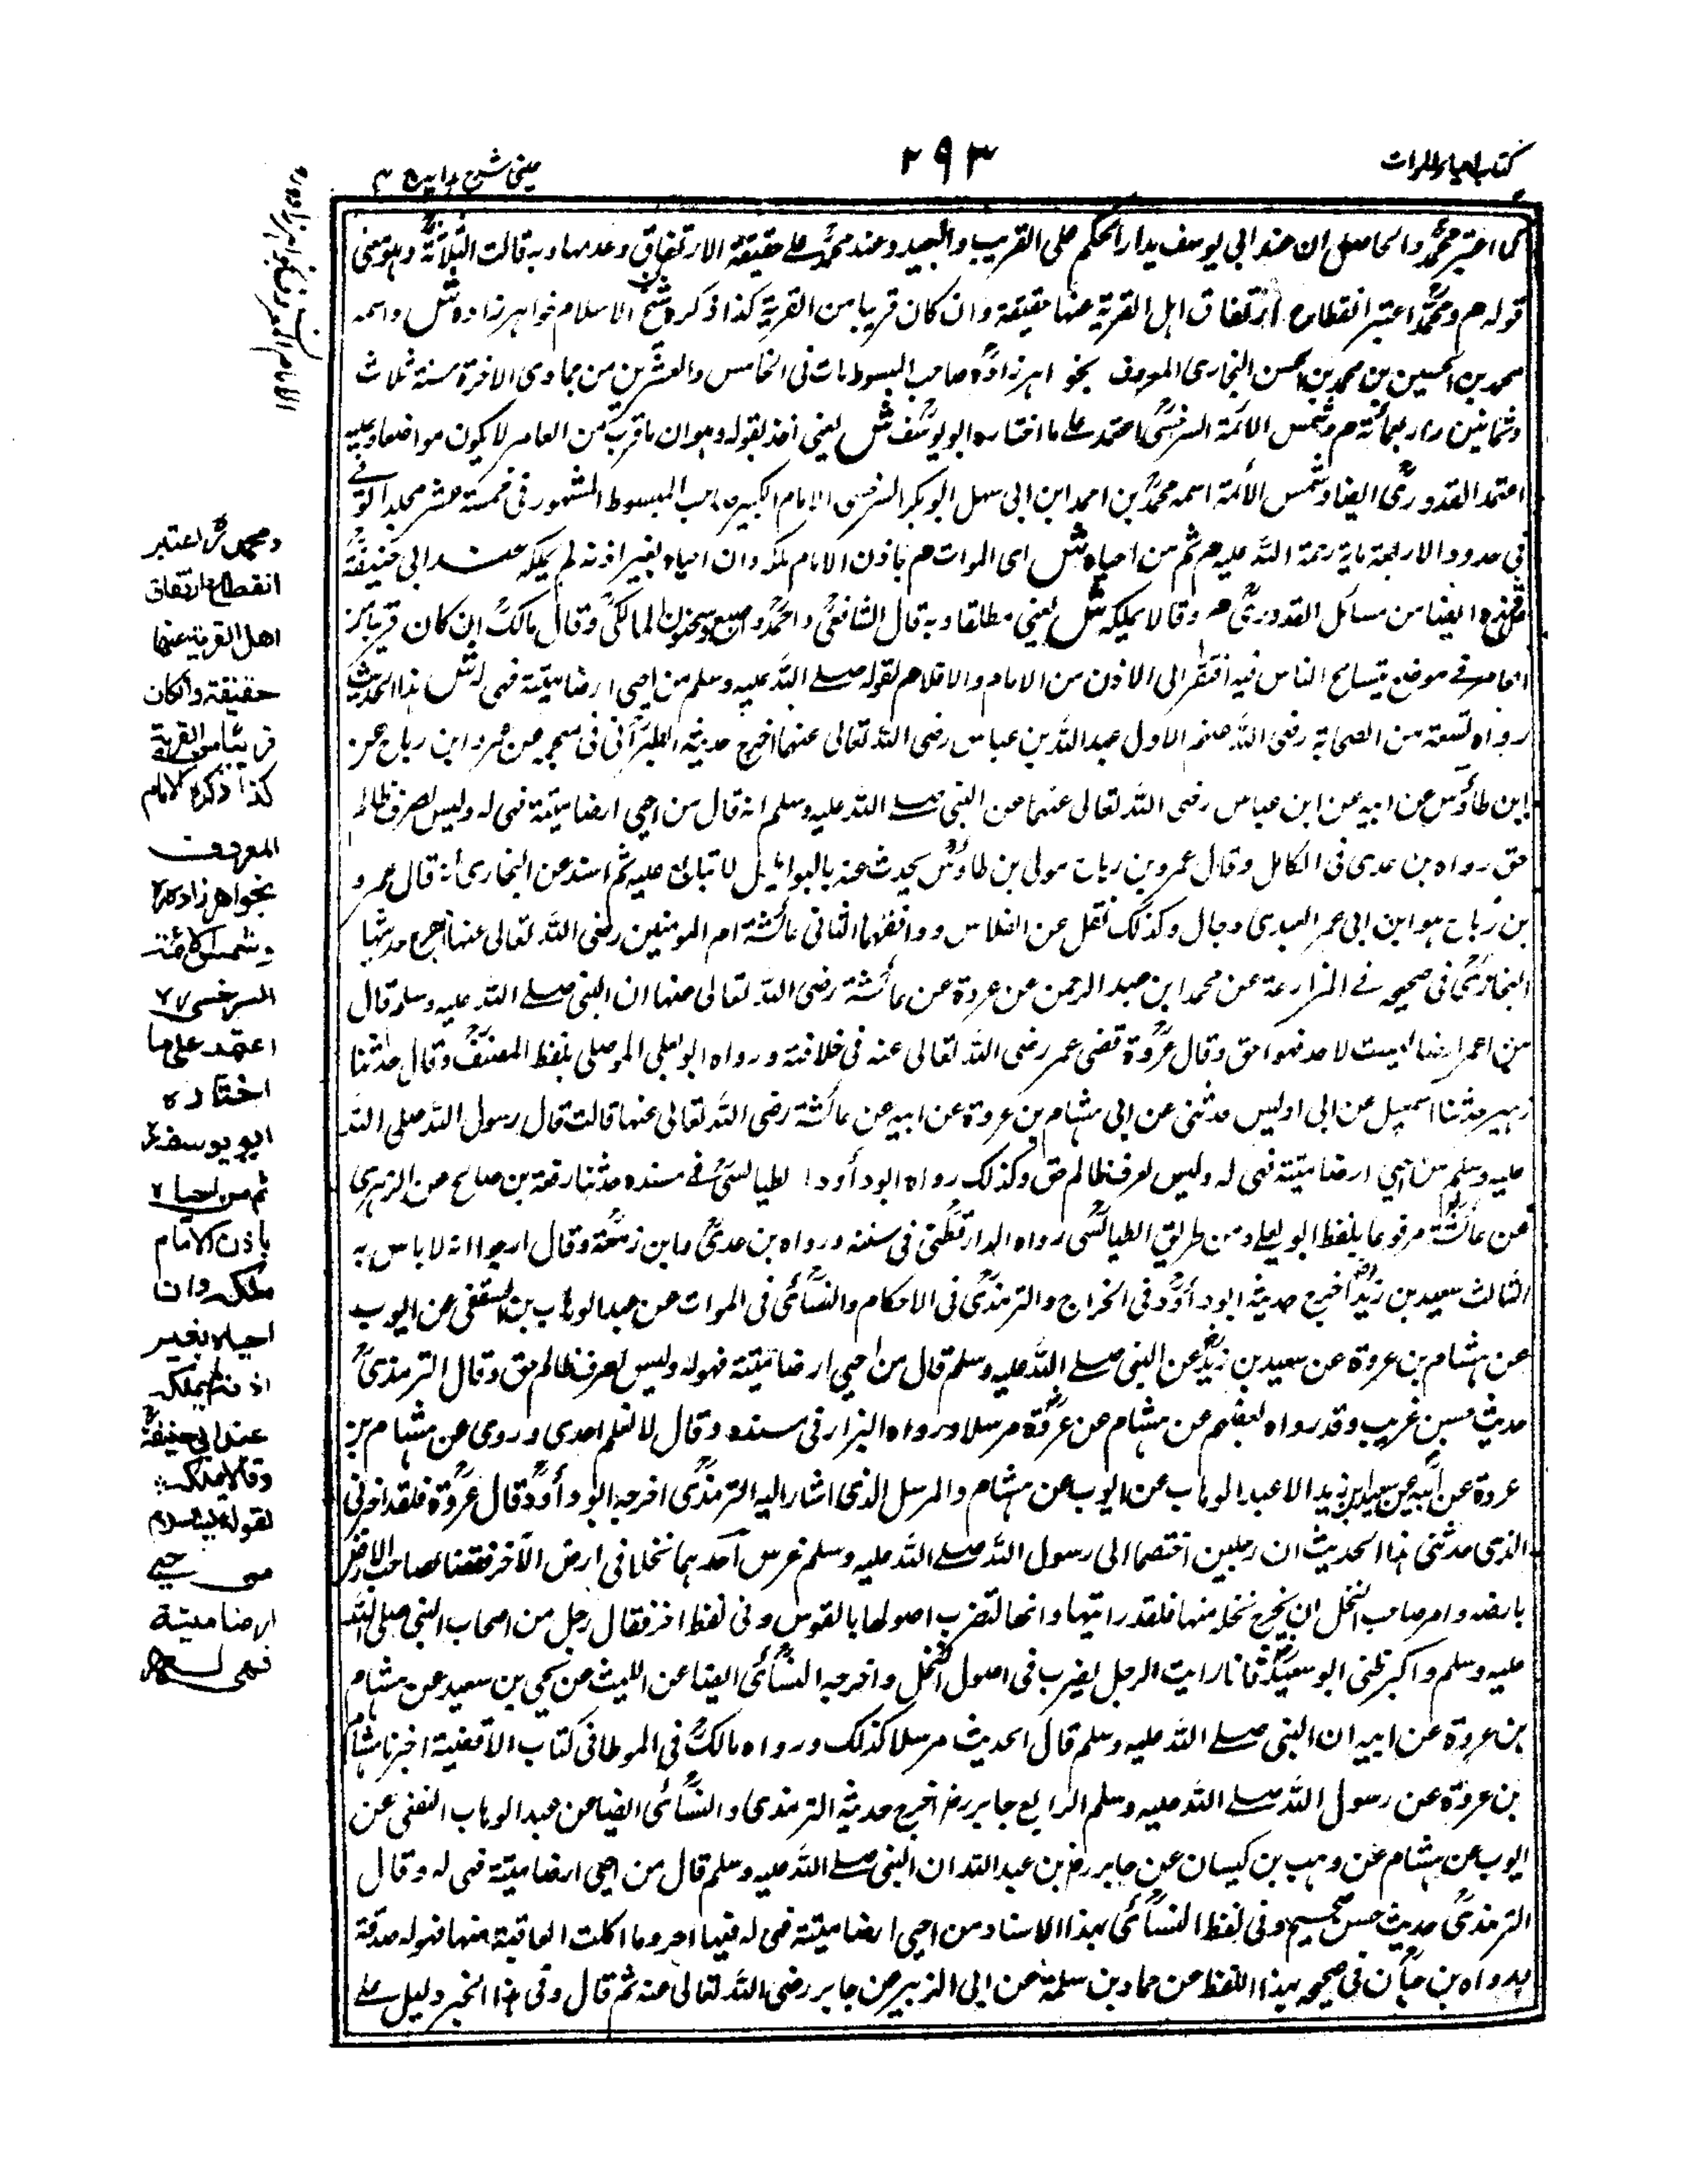 كتاب احياء الموات
٢٩٣
عينى شرح هدايه ج ٣
كما اعتبر محمدؒ والحاصل ان عند ابى يوسف يدار الحكم على القريب والبعيد وعند محمدؒ على حقيقة الارتفاق وعدمها وبه قالت الثلاثةؒ وهو معنى
قوله م ومحمدؒ اعتبر انقطاع ارتفاق اهل القرية عنها حقيقة وان كان قريبا من القرية كذا ذكره شيخ الاسلام خواهر زاده ش واسمه
محمد بن الحسين بن محمد بن الحسن البخارى المعروف بخواهر زادهؒ صاحب المبسوط مات فى الخامس والعشرين من جمادى الاخرة سنة ثلاث
وثمانين واربعمائة م وشمس الائمة السرخسىؒ اعتمد على ما اختاره ابو يوسفؒ ش يعنى اخذ بقوله وهو ان ما قرب من العامر لا يكون مواضعا وعليه
اعتمد القدورىؒ ايضا وشمس الأئمة اسمه محمدؒ بن احمد ابن ابى سهل ابو بكر السرخسى الامام الكبير صاحب المبسوط المشهور فى خمسة عشر مجلدا توفى
فى حدود الاربعة ماية رحمة الله عليه م ثم من احياه ش اى الموات م باذن الامام ملكه وان احياه بغير اذنه لم يملكه عند ابى حنيفةؒ
ش هذه ايضا من مسائل القدورىؒ م وقالا يملكه ش يعنى مطلقا وبه قال الشافعىؒ واحمدؒ واصبغ وسحنون المالكىؒ وقال مالكؒ ان كان قريبا من
العامر فى موضع يتسامح الناس فيه افتقر الى الاذن من الامام والا فلا م لقوله صلے الله عليه وسلم من احيى ارضا ميتة فهى له ش هذا الحديث
رواه تسعة من الصحابة رضى الله عنهم الاول عبد الله بن عباس رضى الله تعالى عنهما اخرج حديثه الطبرانى فى معجمه عن عمرو ابن رباح عن
ابن طاؤس عن ابيه عن ابن عباس رضى الله تعالى عنهما عن النبى صلے الله عليه وسلم انه قال من احيى ارضا ميتة فهى له وليس لعرق ظالم
حق رواه بن عدى فى الكامل وقال عمرو بن رباح مولى بن طاؤس يحدث عنه بالبواطيل لا يتابع عليه ثم اسند عن البخارى أنه قال عمرو
بن رباح هو ابن ابى عمر العبدى دجال وكذلك نقل عن الفلاس ووافقهما الثانى عائشة ام المومنين رضى الله تعالى عنها اخرج حديثها
البخارىؒ فى صحيحه فے المزارعة عن محمد ابن عبد الرحمن عن عروة عن عائشة رضى الله تعالى عنها ان النبى صلے الله عليه وسلم قال
من اعمر ارضا ليست لاحد فهو احق وقال عروةؒ قضى عمر رضى الله تعالى عنه فى خلافته ورواه ابو يعلى الموصلى بلفظ المصنفؒ وقال حدثنا
زهير حدثنا اسمعيل عن ابى اويس حدثنى عن ابى هشام بن عروة عن ابيه عن عائشة رضى الله تعالى عنها قالت قال رسول الله صلى الله
عليه وسلم من احيى ارضا ميتة فهى له وليس لعرق ظالم حق وكذلك رواه ابو دأود الطيالسىؒ فے مسنده حدثنا زمعة بن صالح عن الزهرى
عن عائشة مرفوعا بلفظ ابو يعلے ومن طريق الطيالسى رواه الدارقطنى فى سننه ورواه بن عدىؒ وابن زمعة وقال ارجوا انه لا باس به
الثالث سعيد بن زيد اخرج حديثه ابو دأودؒ فى الخراج والترمذىؒ فى الاحكام والنسائىؒ فى الموات عن عبد الوهاب بن الثقفى عن ايوب
عن هشام بن عروة عن سعيد بن زيد عن النبى صلے الله عليه وسلم قال من احيى ارضا ميتة فهو له وليس لعرق ظالم حق وقال الترمذىؒ
حديث حسن غريب وقد رواه بعضهم عن هشام عن عروةؒ مرسلا ورواه البزار فى مسنده وقال لا نعلم احدى وروى عن هشام بن
عروة عن ابيه عن سعيد بن زيد الا عبد الوهاب عن ايوب عن هشام والمرسل الذى اشار اليه الترمذىؒ اخرجه ابو دأودؒ قال عروةؒ فلقد اخبرنى
الذى حدثنى هذا الحديث ان رجلين اختصما الى رسول الله صلے الله عليه وسلم غرس احدهما نخلا فى ارض الآخر فقضا لصاحب الارض
بارضه وامر صاحب النخل ان يخرج نخله منها فلقد رايتها وانها لتضرب اصولها بالفوس وفى لفظ اخر فقال رجل من اصحاب النبى صلى الله
عليه وسلم واكبر ظنى ابو سعيد فانا رايت الرجل يضرب فى اصول النخل واخرجه النسائىؒ ايضا عن الليث عن يحيى بن سعيد عن هشام
بن عروة عن ابيه ان النبى صلے الله عليه وسلم قال الحديث مرسلا كذلك ورواه مالكؒ فى الموطا فى كتاب الأقضية اخبرنا هشام
بن عروة عن رسول الله صلے الله عليه وسلم الرابع جابر رضـ اخرج حديثه الترمذى والنسائىؒ ايضا عن عبد الوهاب الثقفى عن
ايوب عن هشام عن وهب بن كيسان عن جابر رضـ بن عبد الله ان النبى صلے الله عليه وسلم قال من احيى ارضا ميتة فهى له وقال
الترمذىؒ حديث حسن صحيح وفى لفظ النسائىؒ بهذا الاسناد من احيى ارضا ميتة فهى له فيها اجر وما اكلت العافية منها فهو له صدقة
ورواه بن حبان فى صحيحه بهذا اللفظ عن حماد بن سلمة عن ابى الزبير عن جابر رضى الله تعالى عنه ثم قال وفى هذا الخبر دليل علے
ومحمدؒ اعتبر
انقطاع ارتفاق
اهل القرية عنها
حقيقة وان كان
قريبا من القرية
كذا ذكره الامام
المعروف
بخواهر زادهؒ
وشمس الائمة
السرخسىؒ
اعتمد على ما
اختاره
ابو يوسفؒ
ثم من احياه
باذن الامام
ملكه وان
احياه بغير
اذنه لم يملكه
عند ابى حنيفةؒ
وقالا يملكه
لقوله عليه السلام
من احيى
ارضا ميتة
فهى له